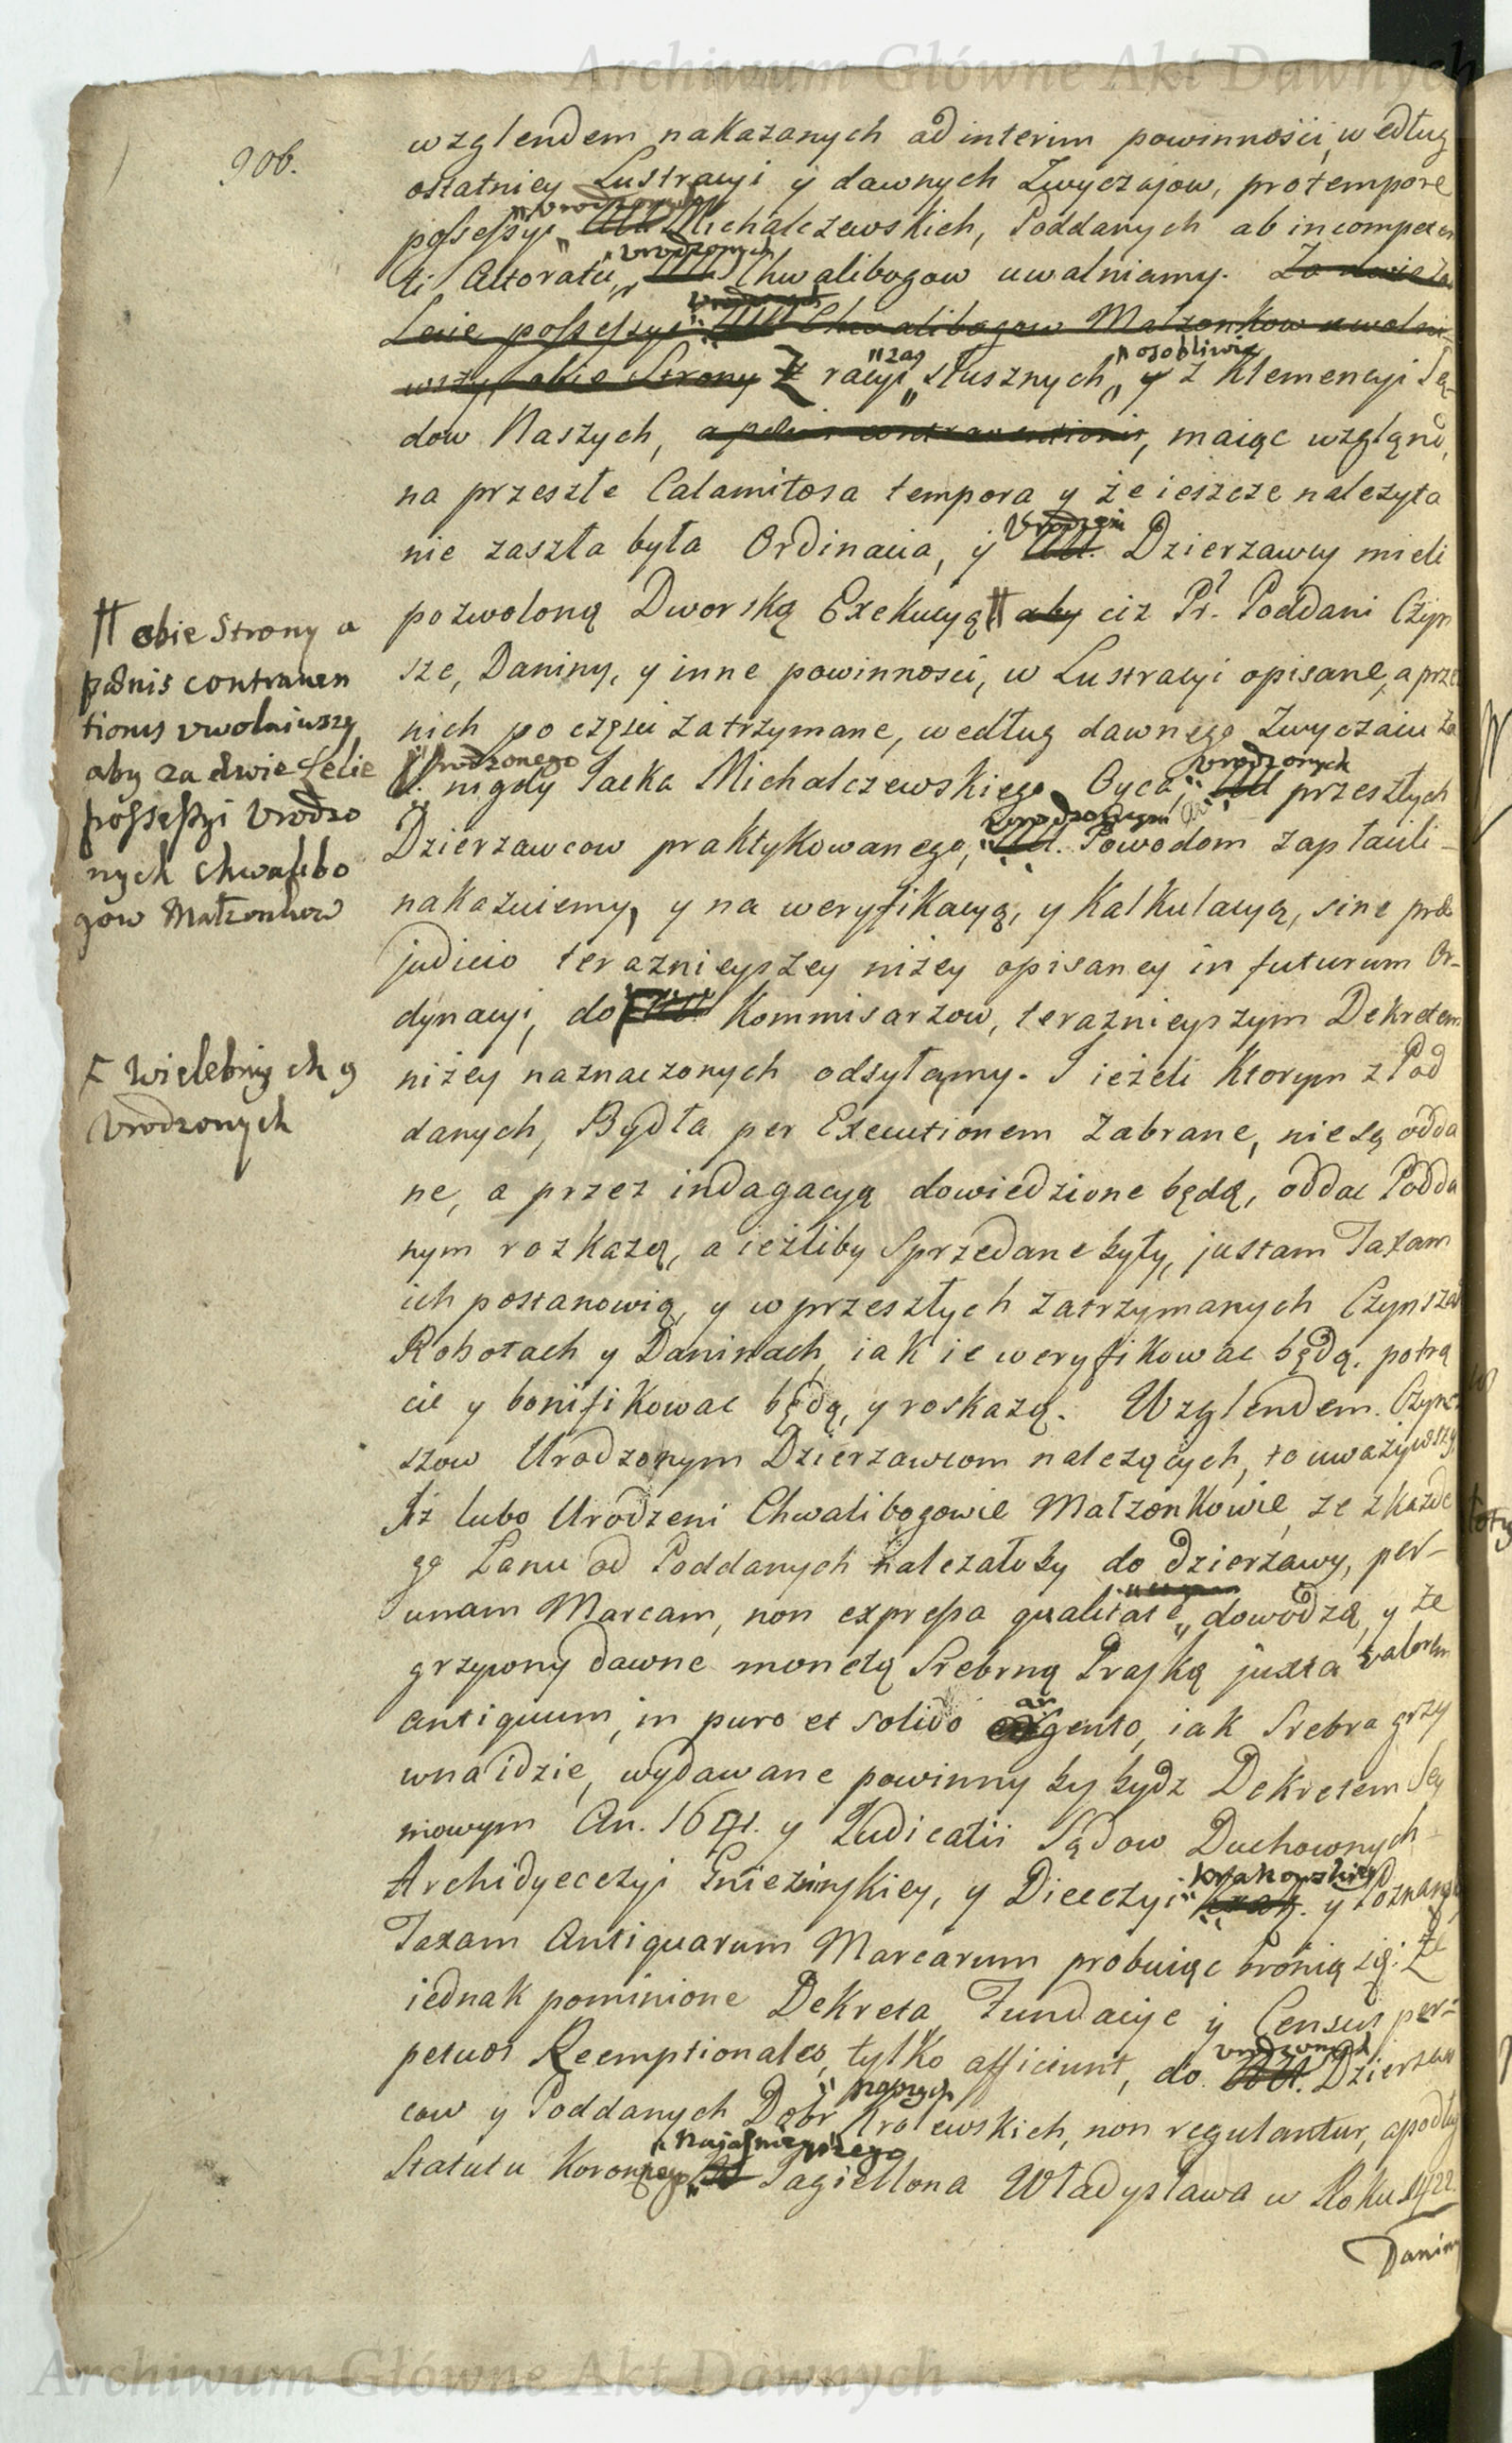 Archiwum Główne Akt Dawnych
906.
wzglendem nakazanych ad interim powinności, według
ostatniey Lustracyi y dawnych Zwyczajow, pro tempore
possessyi Urodzonych UU Michalczewskich, Poddanych ab incompeten
ti Actoratu, Urodzonych UU Chwalibogow uwalniamy. Za dwie Le
Lecie possessyi Urodzonych UU Chwalibogow Małzonkow uwolni-
wszy, obie Strony Z racyi zas słusznych, osobliwie y z Klemencyi Są-
dow Naszych, a pœnis contraventionis, maiąc wzgląnd,
na przeszłe Calamitosa tempora y że ieszcze należyta
nie zaszła była Ordinacia, y Urodzeni UU. Dzierzawcy mieli
pozwoloną Dworską Exekucyą aby ciz Pr. Poddani Czyn
sze, Daniny, y inne powinności, w Lustracyi opisane, a prze
nich po częsci zatrzymane, według dawnego Zwyczaiu za
Urodzonego U. nigdy Jacka Michalczewskiego Oyca, Urodzonych UU przeszłych
Dzierzawcow praktykowanego, Urodzonym UU. Powodom zapłacili-
nakazuiemy, y na weryfikacyą, y Kalkulacyą, sine præ
judicio teraznieyszey niżey opisaney in futurum Or-
dynacyi, do Kommisarzow, teraznieyszym Dekretem
niżey naznaczonych odsyłamy. I ieżeli Ktorym z Pod
danych, Bydła per Executionem zabrane, nie są odda
ne, a przez indagacyą dowiedzione będą, oddac Podda
nym rozkażą, a ieżliby Sprzedane były, justam Taxam
ich postanowią, y w przeszłych zatrzymanych Czynszach
Robotach y Daninach, iak ie weryfikowac będą, potrą
cic y bonifikowac będą, y roskażą. Wzglendem. Czyn-
szow Urodzonym Dzierzawcom należących, to uważywszy
Iż lubo Urodzeni Chwalibogowie Małżonkowie, ze z kazde
go Łanu od Poddanych należałoby do dzierżawy, per-
unam Marcam, non expressa qualitate dowodzą, y że
grzywny dawne monetą Srebrną Praską juxta valorem
antiquum, in puro et solido argento, iak Srebra grzy
wna idzie, wydawane powinny by bydz Dekretem Sey
mowym An. 1641. y Judicatis Sądow Duchownych
Archidyecezyi Gnieznińskiey, y Diecezyi Krakowskiey Krak. y Poznansk
Taxam Antiquarum Marcarum probuiąc bronią się: Że
iednak pominione Dekreta, Fundacije y Census per-
petuos Reemptionales, tylko afficiunt, do Urodzonych UU. Dzierzaw
cow y Poddanych Dobr Naszych Krolewskich, non regulantur, a podług
Statutu Koronnego Najaśnieyszego Jagiellona Władysława w Roku 1422.
Daniny
# obie Strony a
pœnis contraven
tionis uwolniwszy
aby za dwie Lecie
possessyi Urodzo
nych Chwalibo
gow Małzonkow
F Wielebnych y
Urodzonych
Archiwum Główne Akt Dawnych